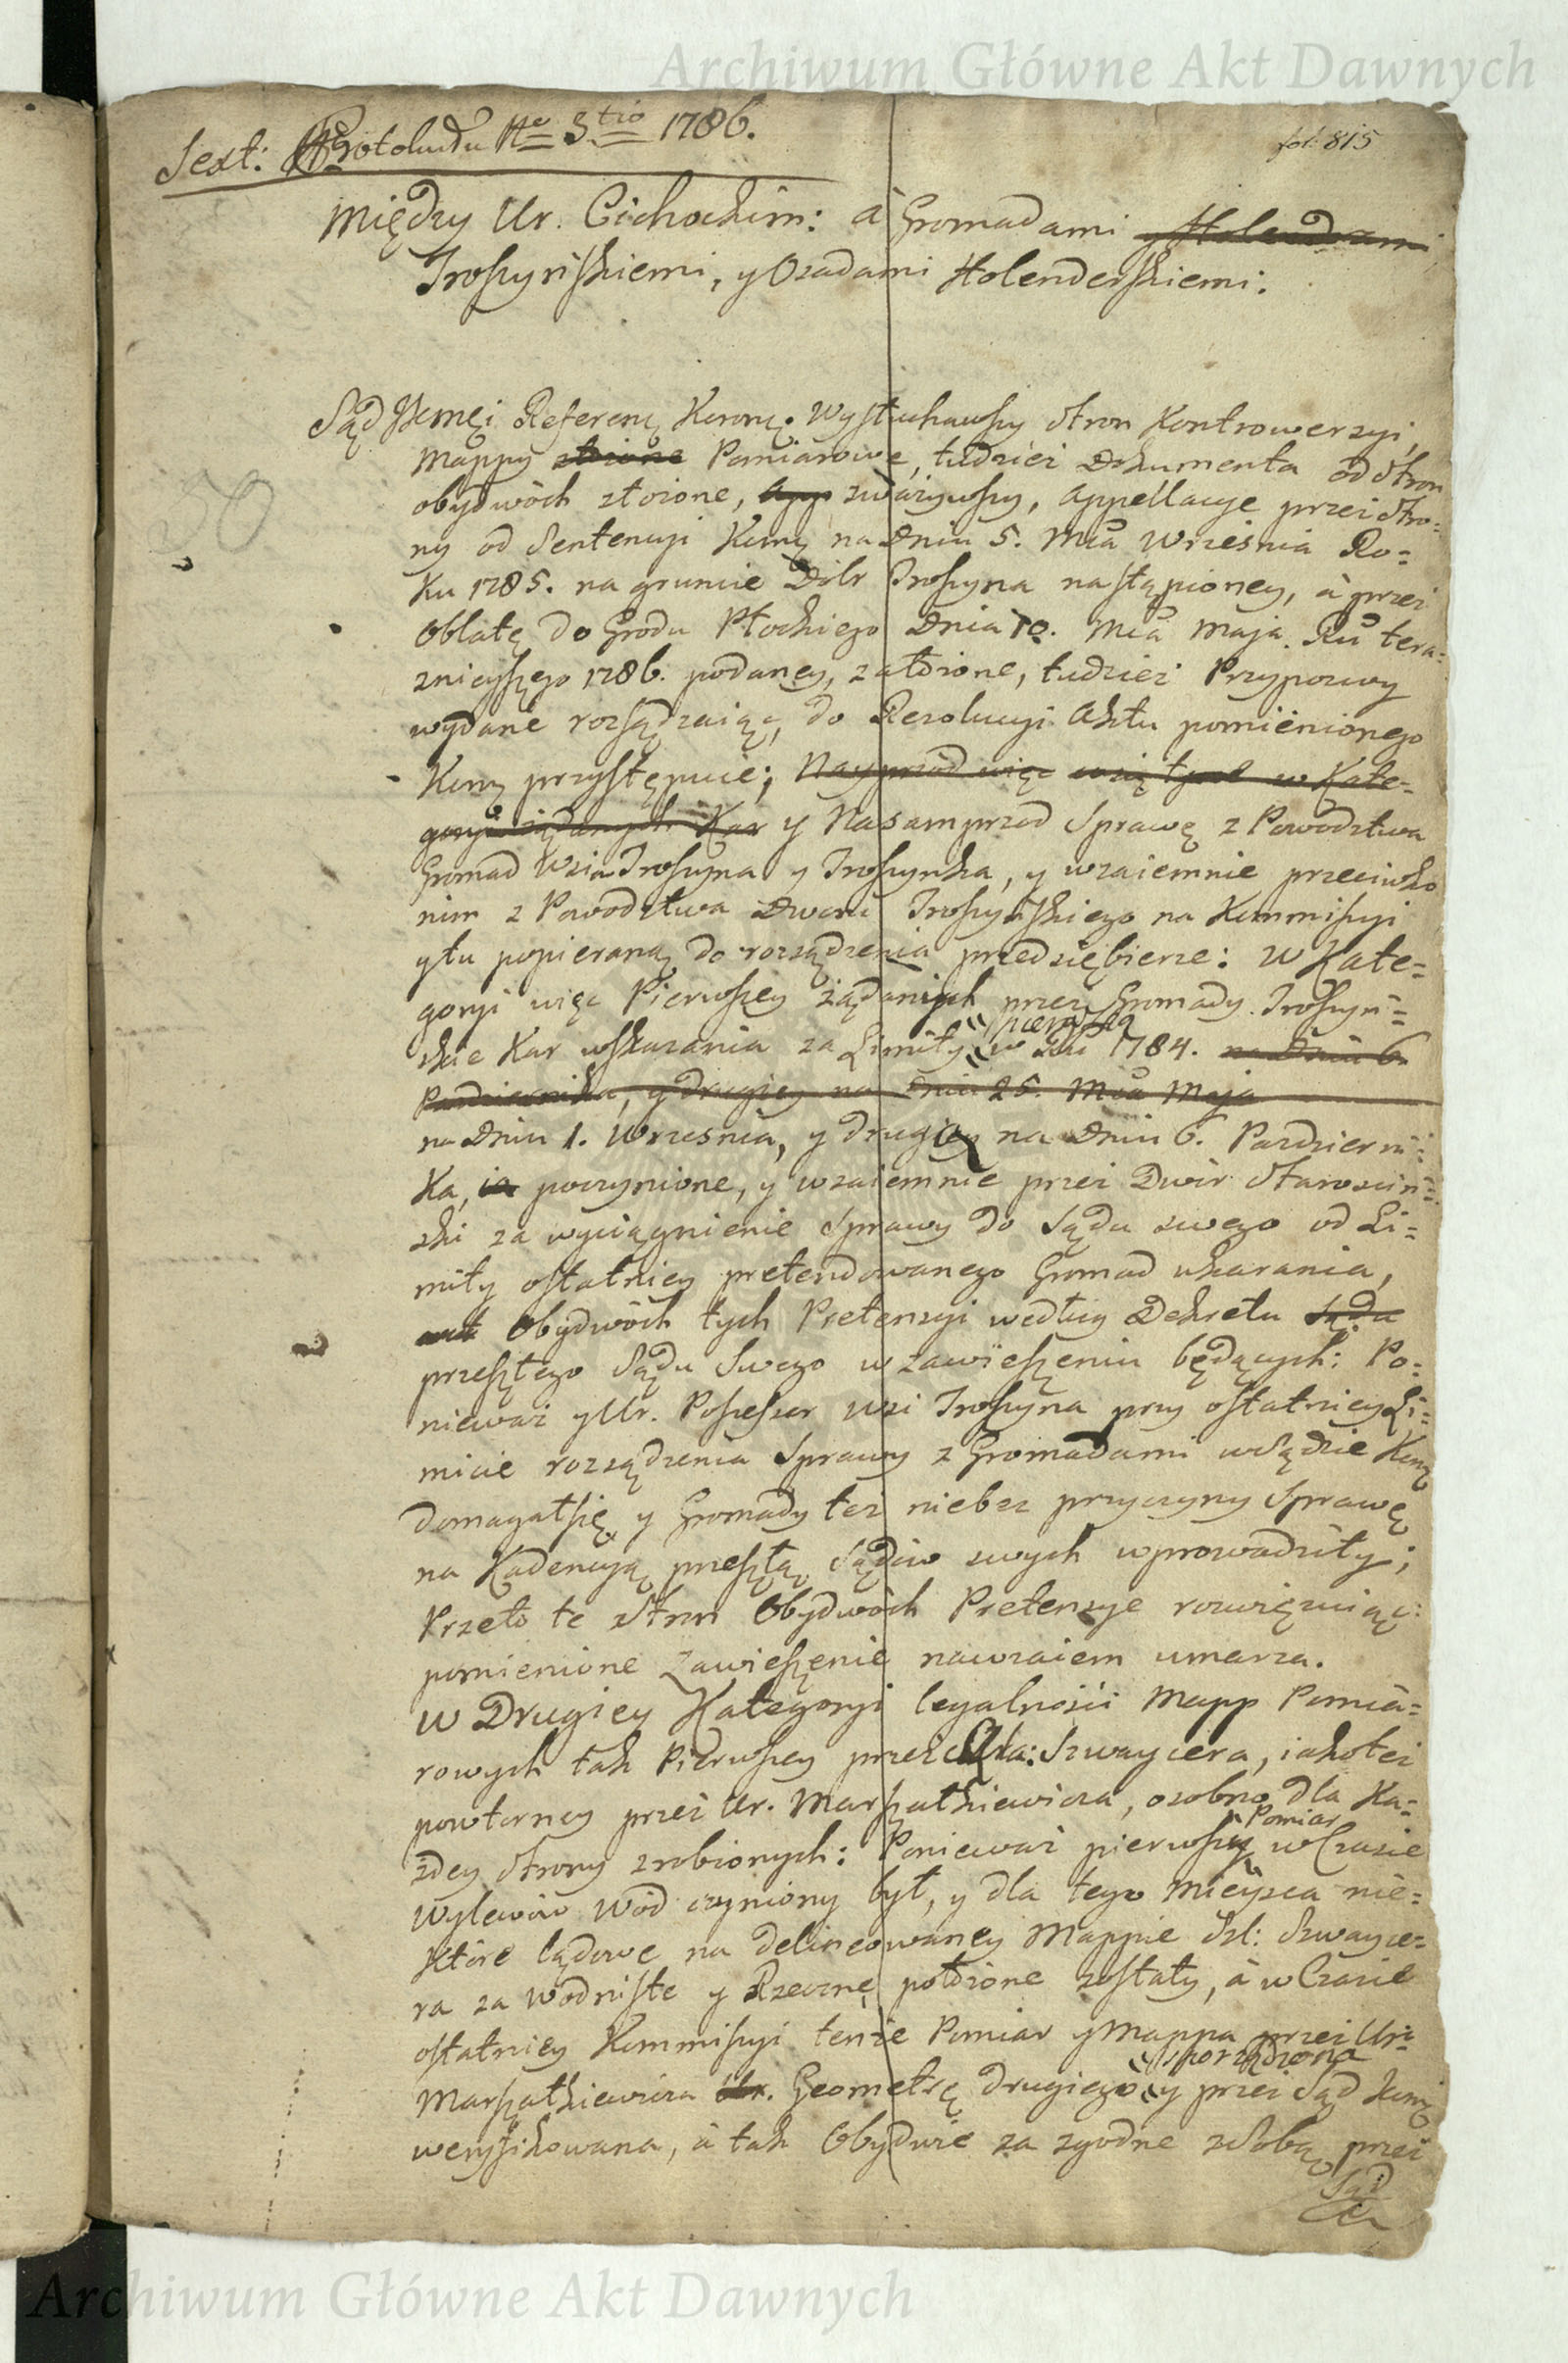 Archiwum Główne Akt Dawnych
Sext: Protokułu 1786.
fol: 815
Między Ur. Cichockim: à Gromadami y Holendrami
Troszyńskiemi, y Osadami Holenderskiemi:
Sąd Referen: Koron: Wysłuchawszy Stron Kontrowersyi,
Mappy złożone Pomiarowe, tudzież Dokumenta od Stron
obydwóch złożone, App zważywszy, Appellacye przez Stro=
ny od Sentencyi Kom̃y na Dniu 5. Mca Września Ro=
ku 1785. na gruncie Dóbr Troszyna nastąpioney, à przez
Oblatę do Grodu Płockiego Dnia 10. Mca Maja Ru tera=
znieyszego 1786. podaney, założone, tudzież Przypozwy
wydane rozsądzaiąc, do Rezolucyi Aktu pomienionego
Kom̃y przystępuie; Nayprzód więc wziętych w Kate=
goryi żądanych Kar y Nasamprzód Sprawę z Powodztwa
Gromad Wsiów Troszyna y Troszynka, y wzaiemnie przeciwko
nim z Powodztwa Dworu Troszyńskiego na Kommissyi
ytu popieraną do rozsądzenia przedsiębierze: W Kate=
goryi więc Pierwszey żądanych przez Gromady Troszyń=
skie Kar wskazania za Limity pierwszą w Ru 1784. na Dniu 6.
Pazdziernika, y drugiey na Dniu 25. Mca Maja
na Dniu 1. Wrzesnia, y drugą na Dniu 6. Pazdzierni=
ka, poczynione, y wzaiemnie przez Dwór Starościń=
ski za wyciągnienie Sprawy do Sądu swego od Li=
mity ostatniey pretendowanego Gromad ukarania,
Obydwóch tych Pretensyi według Dekretu Sądu
przeszłego Sądu Swego w zawieszeniu będących: Po=
nieważ y Ur. Possessor Wsi Troszyna przy ostatniey Li=
micie rozsądzenia Sprawy z Gromadami w Sądzie Kom̃y
domagał się, y Gromady też niebez przyczyny Sprawę
na Kadencyą przeszłą Sądów swych wprowadziły;
Przeto te Stron Obydwóch Pretensye rozwięzuiąc
pomienione Zawieszenie nawzaiem umarza.
W Drugiey Kategoryi legalności Mapp Pomia=
rowych tak Pierwszey przez Szla: Szwaycera, iako też
powtorney przez Ur. Marszałkiewicza, osobno dla Ka=
żdey Strony zrobionych: Ponieważ pierwszy Pomiar w Czasie
Wylewów Wód czyniony był, y dla tego Mieysca nie=
które lądowe na delineowaney Mappie Szl: Szwayce=
ra za wodniste y Rzeczne położone zostały, à w Czasie
ostatniey Kommissyi tenże Pomiar y Mappa przez Ur:
Marszałkiewicza Ur. Geometrę drugiego sporządzona y przez Sąd Kom̃y
weryfikowana, à tak Obydwie za zgodne z Sobą przez
Sąd
Archiwum Główne Akt Dawnych